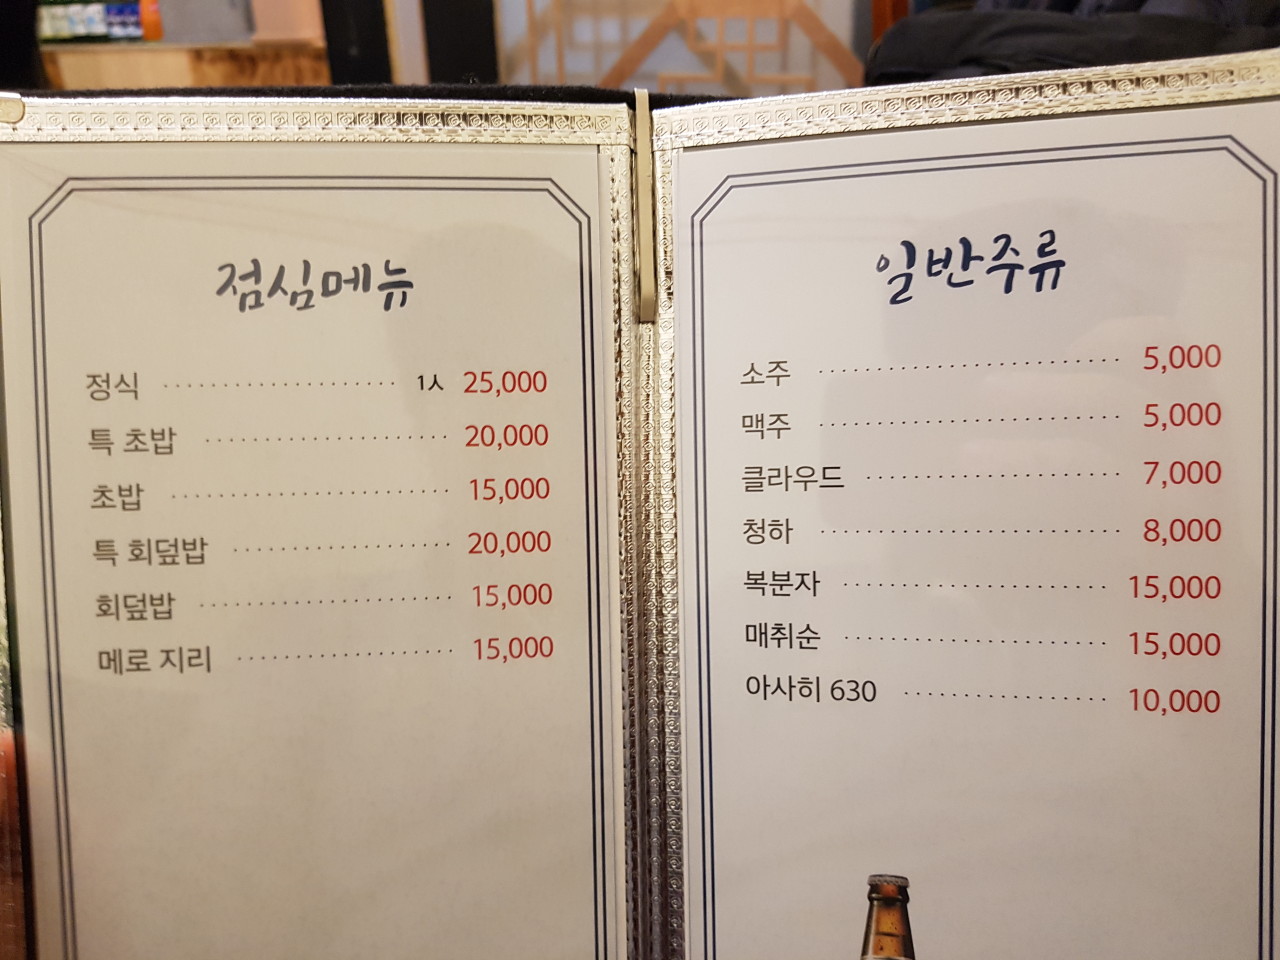 점심메뉴
정식 ························ 1人 25,000
특 초밥 ························ 20,000
초밥 ························ 15,000
특 회덮밥 ························ 20,000
회덮밥 ························ 15,000
메로 지리 ························ 15,000
일반주류
소주 ························ 5,000
맥주 ························ 5,000
클라우드 ························ 7,000
청하 ························ 8,000
복분자 ························ 15,000
매취순 ························ 15,000
아사히 630 ························ 10,000